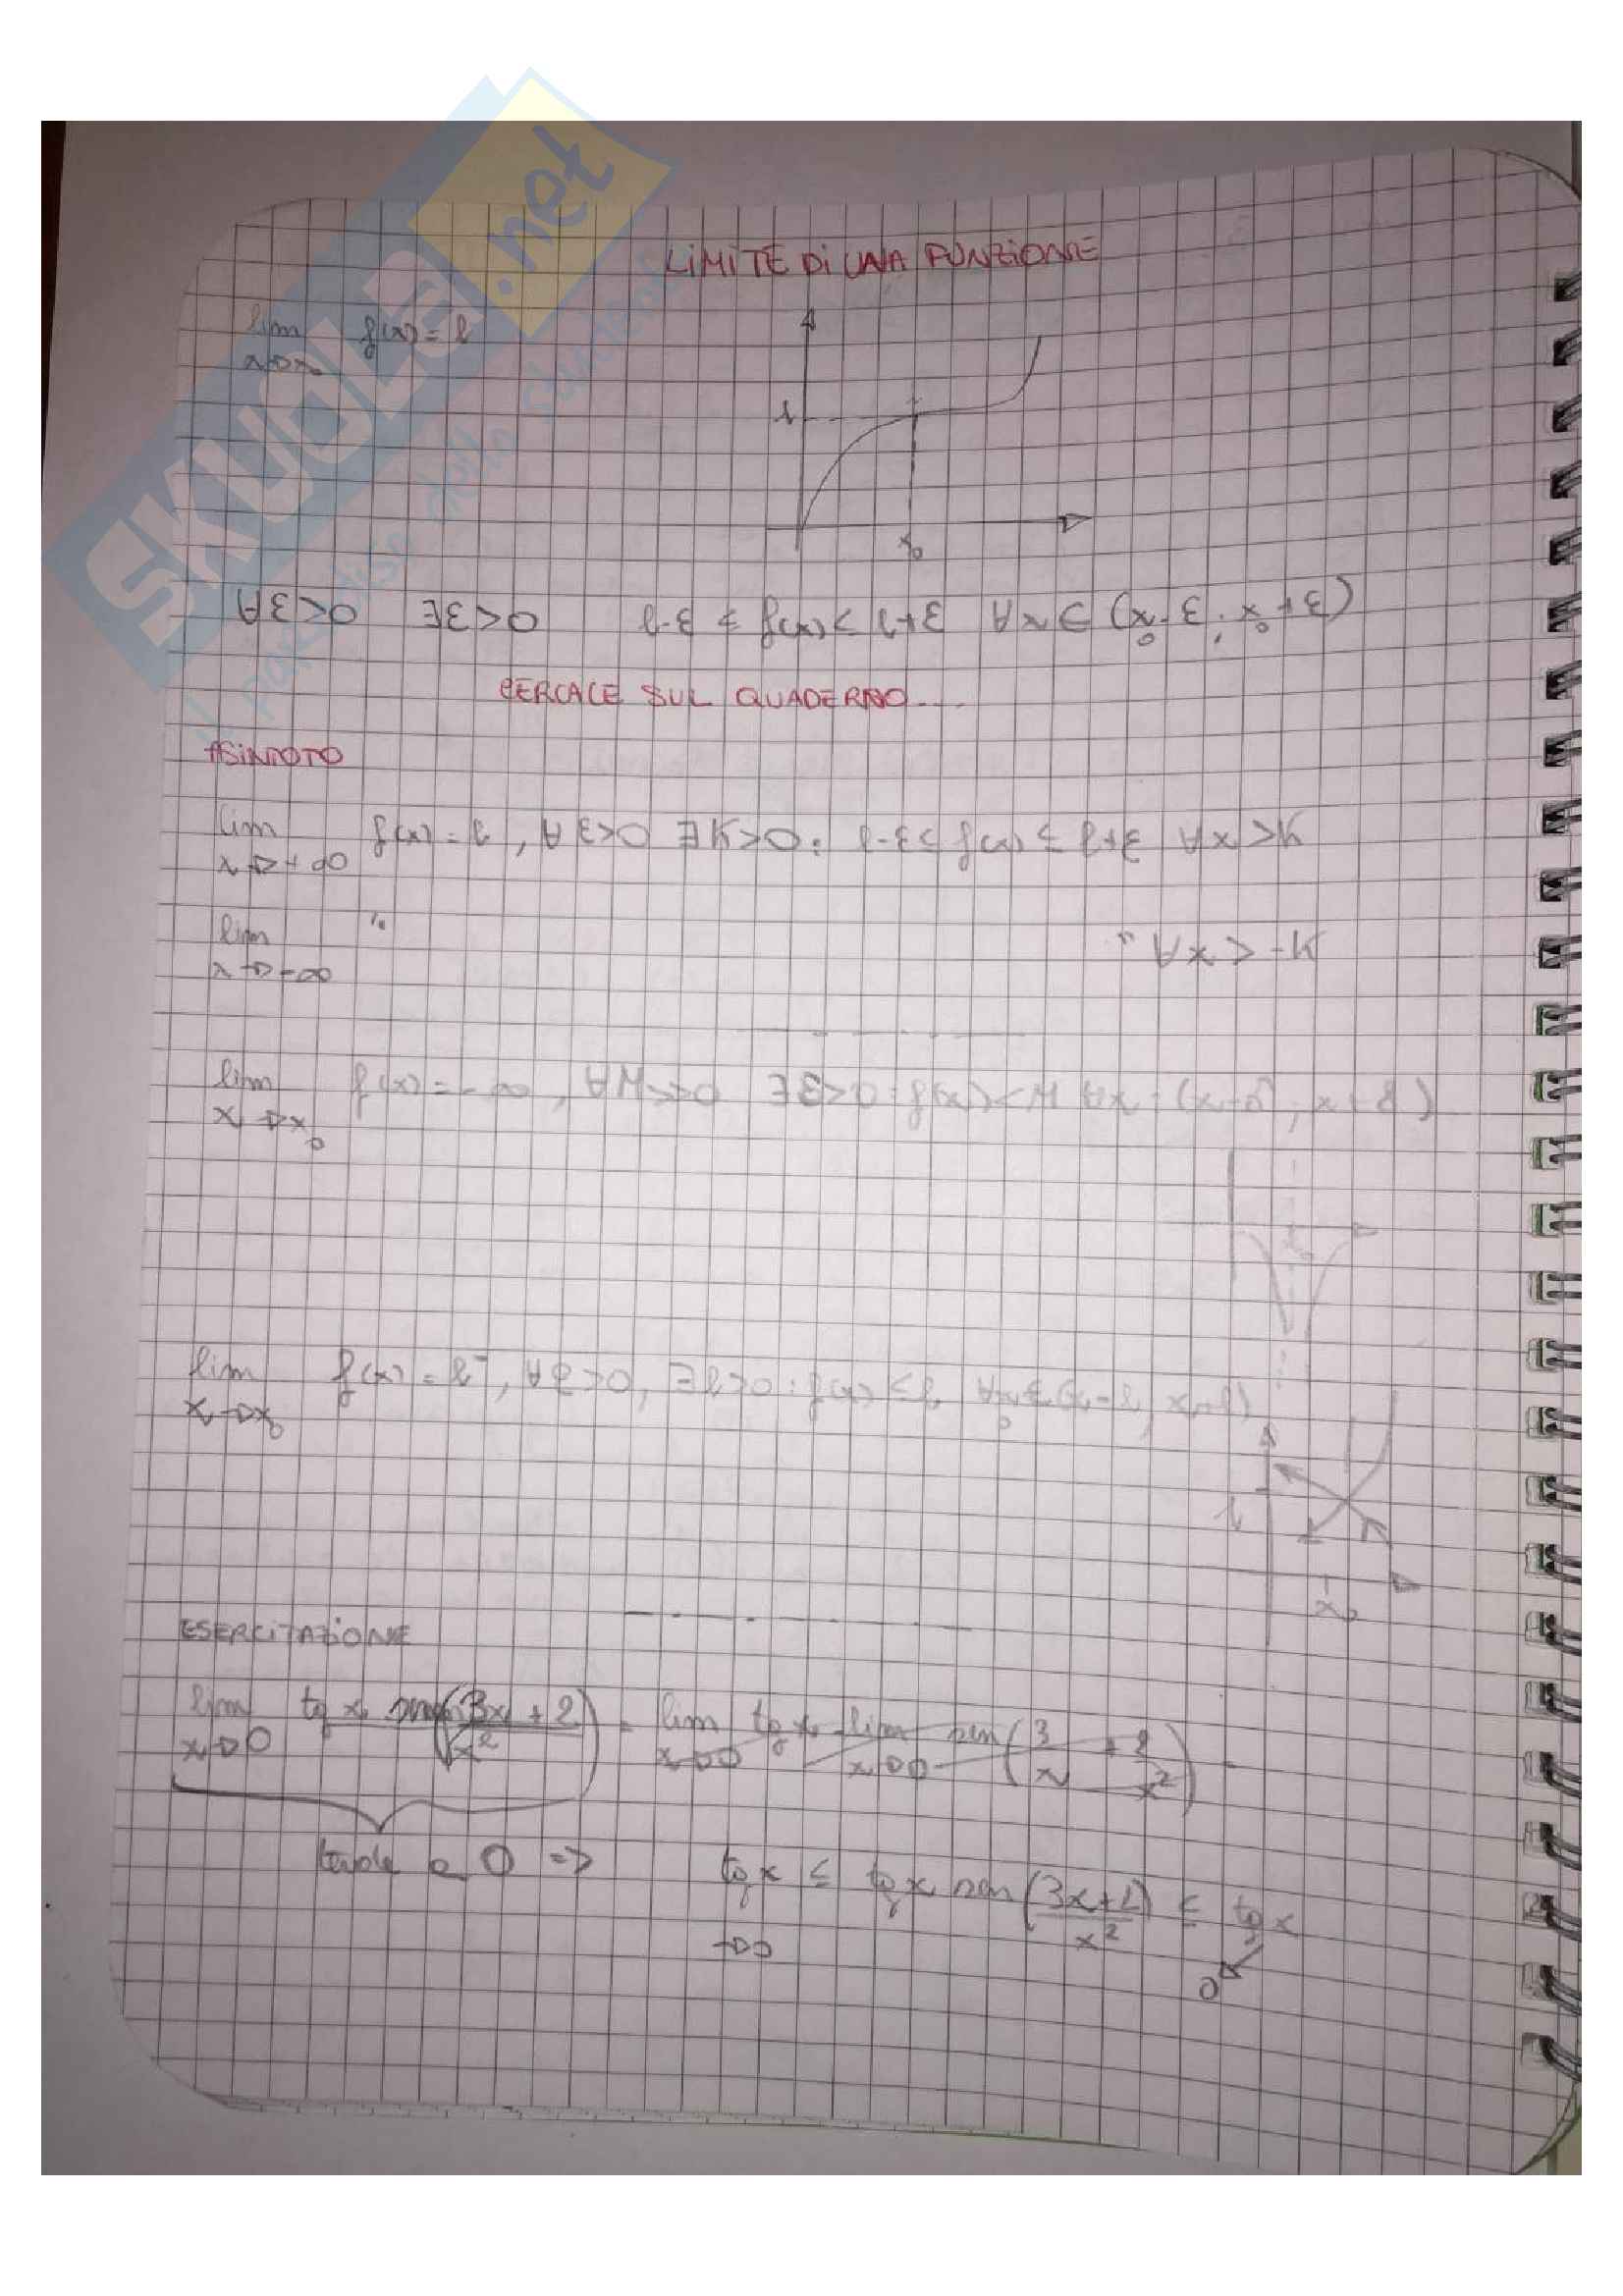 SKUOLA.net
LIMITE DI UNA FUNZIONE
lim f(x) = l
x→x₀
l
x₀
∀ε>0 ∃ε>0 l-ε ≤ f(x) ≤ l+ε ∀x∈(x₀-ε; x₀+ε)
CERCALE SUL QUADERNO...
ASINTOTO
lim f(x) = l, ∀ε>0 ∃K>0: l-ε ≤ f(x) ≤ l+ε ∀x>K
x→+∞
lim " " ∀x < -K
x→-∞
lim f(x) = -∞, ∀M>0 ∃ε>0: f(x)<-M ∀x
x→x₀
x₀
lim f(x) = l⁻, ∀ε>0, ∃
x→x₀
l
x₀
ESERCITAZIONE
lim tg x sen(3x+2/x²) = lim tg x · lim sen(3/x + 2/x²) =
x→0 x→0 x→0
tende a 0 => tg x ≤ tg x sen(3x+2/x²) ≤ tg x
→0 0